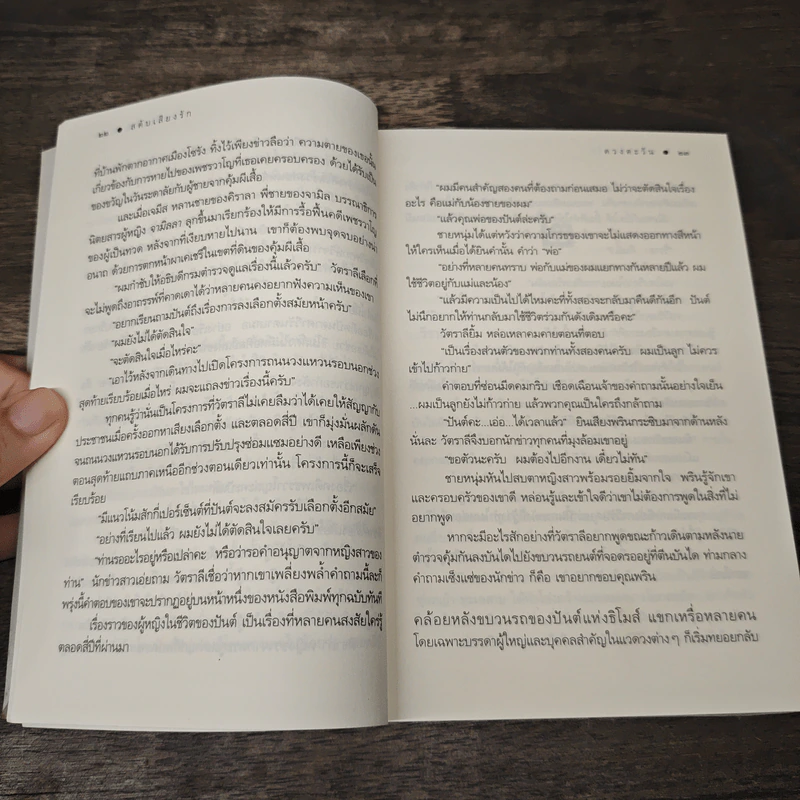 ๒๒ ● สดับเสียงรัก
ที่บ้านพักตากอากาศเมืองโซรัง ทิ้งไว้เพียงข่าวลือว่า ความตายของเธอนั้น
เกี่ยวข้องกับการหายไปของเพชรวาโญที่เธอเคยครอบครอง ด้วยได้รับเป็น
ของขวัญในวันระดาลัยกับผู้ชายจากคุ้มผีเสื้อ
และเมื่อเจมีส หลานชายของคิราลา พี่ชายของจามิล บรรณาธิการ
นิตยสารผู้หญิง จามิลลา ลุกขึ้นมาเรียกร้องให้มีการรื้อฟื้นคดีเพชรวาโญ
ของผู้เป็นทวด หลังจากที่เงียบหายไปนาน เขาก็ต้องพบจุดจบอย่างน่า
อนาถ ด้วยการตกหน้าผาเคเชรีในเขตที่ดินของคุ้มผีเสื้อ
“ผมกำชับให้อธิบดีกรมตำรวจดูแลเรื่องนี้แล้วครับ” วัตราลีเลือกที่
จะไม่พูดถึงอาถรรพ์ที่คาดเดาได้ว่าหลายคนคงอยากฟังความเห็นของเขา
“อยากเรียนถามปันต์ถึงเรื่องการลงเลือกตั้งสมัยหน้าครับ”
“ผมยังไม่ได้ตัดสินใจ”
“จะตัดสินใจเมื่อไหร่คะ”
“เอาไว้หลังจากเดินทางไปเปิดโครงการถนนวงแหวนรอบนอกช่วง
สุดท้ายเรียบร้อยเมื่อไหร่ ผมจะแถลงข่าวเรื่องนี้ครับ”
ทุกคนรู้ว่านั่นเป็นโครงการที่วัตราลีไม่เคยลืมว่าได้เคยให้สัญญากับ
ประชาชนเมื่อครั้งออกหาเสียงเลือกตั้ง และตลอดสี่ปี เขาก็มุ่งมั่นผลักดัน
จนถนนวงแหวนรอบนอกได้รับการปรับปรุงซ่อมแซมอย่างดี เหลือเพียงช่วง
ตอนสุดท้ายแถบภาคเหนืออีกช่วงตอนเดียวเท่านั้น โครงการนี้ก็จะเสร็จ
เรียบร้อย
“มีแนวโน้มสักกี่เปอร์เซ็นต์ที่ปันต์จะลงสมัครรับเลือกตั้งอีกสมัย”
“อย่างที่เรียนไปแล้ว ผมยังไม่ได้ตัดสินใจเลยครับ”
“ท่านรออะไรอยู่หรือเปล่าคะ หรือว่ารอคำอนุญาตจากหญิงสาวของ
ท่าน” นักข่าวสาวเอ่ยถาม วัตราลีเชื่อว่าหากเขาเพลี่ยงพล้ำคำถามนี้ละก็
พรุ่งนี้คำตอบของเขาจะปรากฏอยู่บนหน้าหนึ่งของหนังสือพิมพ์ทุกฉบับทันที
เรื่องราวของผู้หญิงในชีวิตของปันต์ เป็นเรื่องที่หลายคนสงสัยใคร่รู้
ตลอดสี่ปีที่ผ่านมา
ดวงตะวัน ● ๒๓
“ผมมีคนสำคัญสองคนที่ต้องถามก่อนเสมอ ไม่ว่าจะตัดสินใจเรื่อง
อะไร คือแม่กับน้องชายของผม”
“แล้วคุณพ่อของปันต์ล่ะครับ”
ชายหนุ่มได้แต่หวังว่าความโกรธของเขาจะไม่แสดงออกทางสีหน้า
ให้ใครเห็นเมื่อได้ยินคำนั้น คำว่า “พ่อ”
“อย่างที่หลายคนทราบ พ่อกับแม่ของผมแยกทางกันหลายปีแล้ว ผม
ใช้ชีวิตอยู่กับแม่และน้อง”
“แล้วมีความเป็นไปได้ไหมคะที่ทั้งสองจะกลับมาคืนดีกันอีก ปันต์
ไม่นึกอยากให้ท่านกลับมาใช้ชีวิตร่วมกันดังเดิมหรือคะ”
วัตราลียิ้ม หล่อเหลาคมคายตอนที่ตอบ
“เป็นเรื่องส่วนตัวของพวกท่านทั้งสองคนครับ ผมเป็นลูก ไม่ควร
เข้าไปก้าวก่าย”
คำตอบที่ซ่อนมีดคมกริบ เชือดเฉือนเจ้าของคำถามนั้นอย่างใจเย็น
...ผมเป็นลูกยังไม่ก้าวก่าย แล้วพวกคุณเป็นใครถึงกล้าถาม
“ปันต์คะ...เอ่อ...ได้เวลาแล้ว” ยินเสียงพรินกระซิบมาจากด้านหลัง
นั่นละ วัตราลีจึงบอกนักข่าวทุกคนที่มุงล้อมเขาอยู่
“ขอตัวนะครับ ผมต้องไปอีกงาน เดี๋ยวไม่ทัน”
ชายหนุ่มหันไปสบตาหญิงสาวพร้อมรอยยิ้มจากใจ พรินรู้จักเขา
และครอบครัวของเขาดี หล่อนรู้และเข้าใจดีว่าเขาไม่ต้องการพูดในสิ่งที่ไม่
อยากพูด
หากจะมีอะไรสักอย่างที่วัตราลีอยากพูดขณะก้าวเดินตามหลังนาย
ตำรวจคุ้มกันลงบันไดไปยังขบวนรถยนต์ที่จอดรออยู่ที่ตีนบันได ท่ามกลาง
คำถามเซ็งแซ่ของนักข่าว ก็คือ เขาอยากขอบคุณพริน
คล้อยหลังขบวนรถของปันต์แห่งธิโมส์ แขกเหรื่อหลายคน
โดยเฉพาะบรรดาผู้ใหญ่และบุคคลสำคัญในแวดวงต่างๆ ก็เริ่มทยอยกลับ